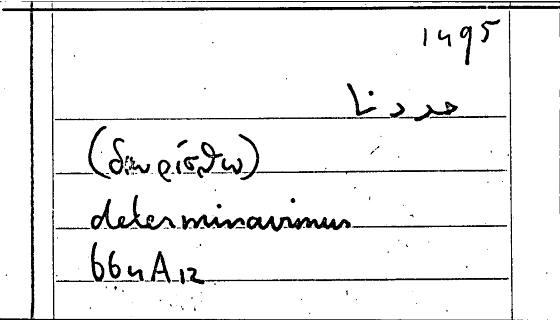 1495
حددنا
(διωρίσθω)
determinavimus
664A12